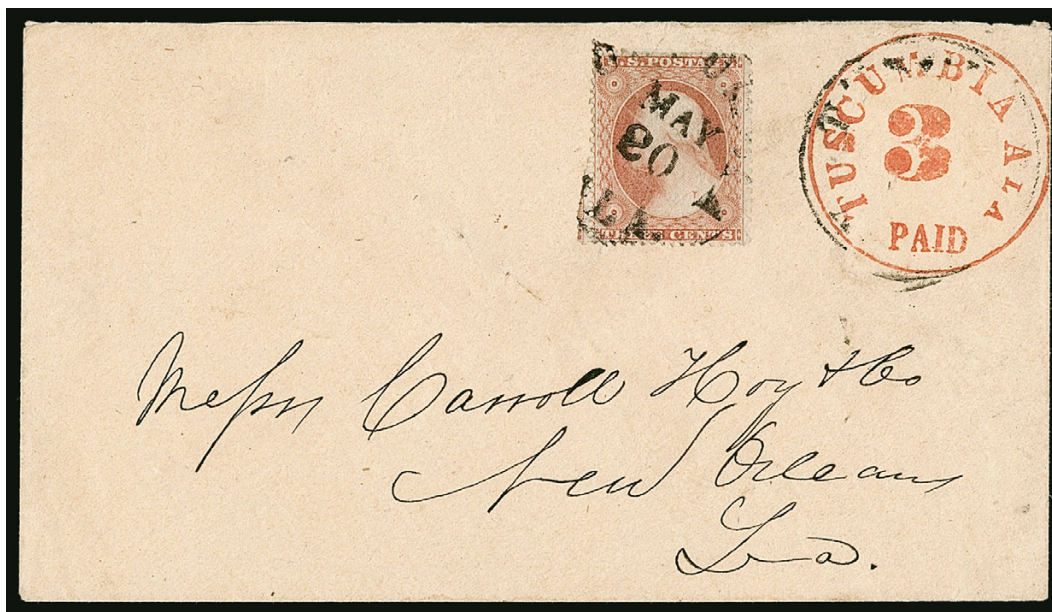 U.S. POSTAGE
MAY
20
THREE CENTS
TUSCUMBIA ALA
3
PAID
Messrs Carroll Hoy & Co
New Orleans
La.